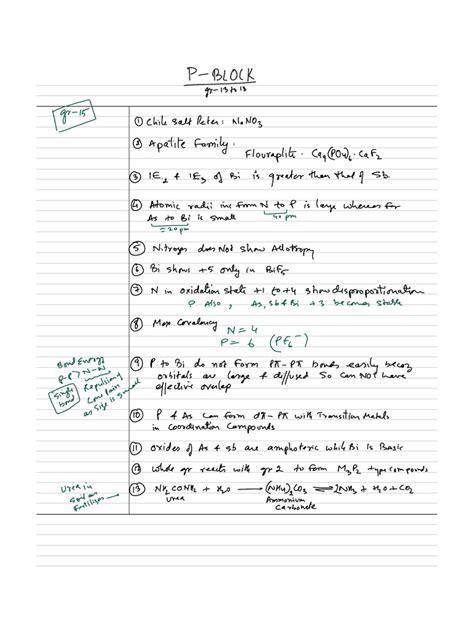 P-BLOCK
gr-13 to 18
gr-15
① Chile Salt Peter: NaNO3
② Apatite Family:
Flouraplite. Ca9(PO4)6.CaF2
③ IE2 & IE3 of Bi is greater than that of Sb.
④ Atomic radii inc form N to P is large whereas for
40 pm
As to Bi is small
=20pm
⑤ Nitrogen does Not Show Allotropy
⑥ Bi shows +5 only in BiF5
⑦ N in oxidation state +1 to +4 show disproportionation
P Also, As, Sb & Bi +3 becomes stable
⑧ Max Covalency
N = 4
P = 6 (PF6-)
Bond Energy
P-P > N-N
Single bond
Repulsion of
Low pair
as Size is Small
⑨ P to Bi do not Form Pπ-Pπ bonds easily becoz
orbitals are large & diffused So Can NOT have
effective overlap
⑩ P & As Can form dπ-Pπ with Transition Metals
in Coordination Compounds
⑪ oxides of As & Sb are amphoteric while Bi is Basic
⑫ Whole gr reacts with gr 2 to form M3P2 type compounds
Urea in
Soil as
Fertilizer
⑬ NH2CONH2 + H2O → (NH4)2CO3 ⇌ 2NH3 + H2O + CO2
Urea Ammonium
Carbonate